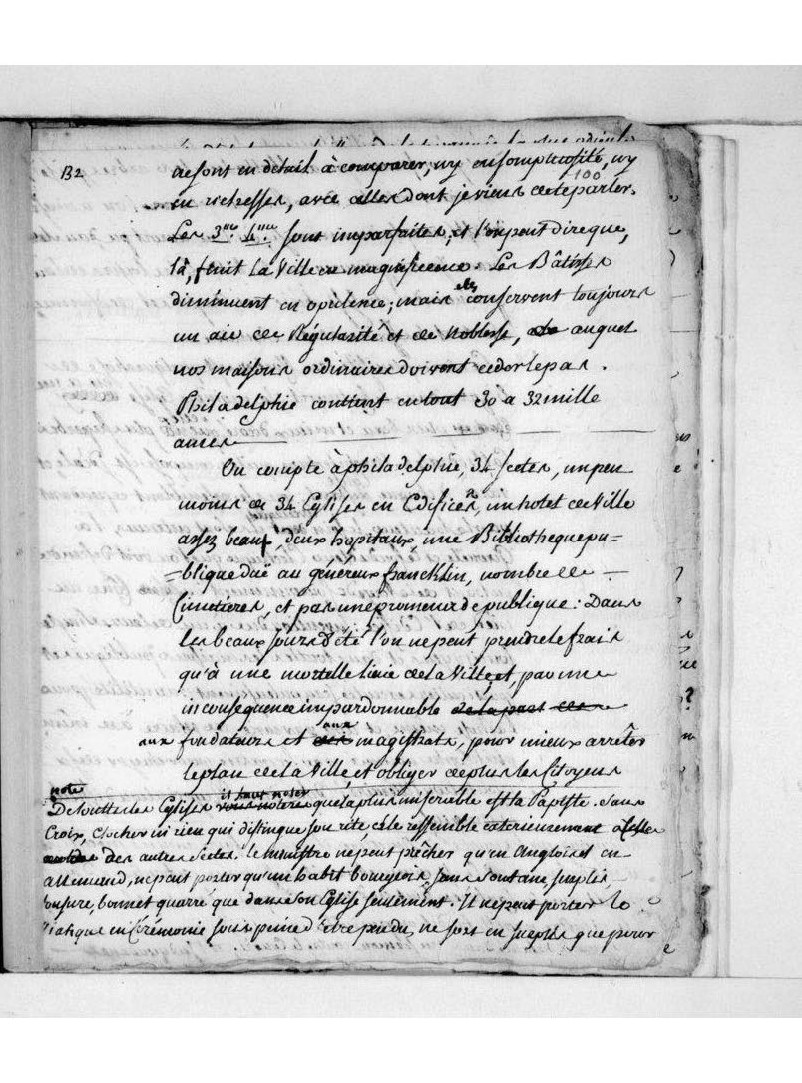 B2
ne sont en detail à comparer, ny en somptuosité, ny
100
en richesses, avec celles dont je viens de te parler.
Les 3me. 4me. sont imparfaites, et l'on peut dire que,
là, finit La Ville en magnificence. Les Bâtisses
diminuent en opulence; mais elles conservent toujours
un air de Régularité et de Noblesse, auquel
nos maisons ordinaires doivent ceder le pas.
Philadelphie contient en tout 30 a 32 mille
ames
On compte à philadelphie, 34 sectes, un peu
moins de 34 Eglises en Edifices, un hotel de Ville
assez beau, deux hopitaux, une Bibliotheque pu=
=blique duë au généreux francklin, nombre de
Cimetieres, et pas une promenade publique. Dans
les beaux jours d'été l'on ne peut prendre le frais
qu'à une mortelle lieüe de la Ville, et, par une
inconséquence impardonnable de la part des
aux fondateurs et aux magistrats, pour mieux arrêter
le plan de la Ville, et obliger de plus les Citoyens
note
De toutes les Eglises il faut noter que la plus miserable est la Papiste. Sans
Croix, Clocher ni rien qui distingue son rite elle ressemble exterieurement a celles
des autres sectes. le ministre ne peut prêcher qu'en Anglois et en
allemand, ne peut porter qu'un habit bourgeois, sans soutane, surplis,
tonsure, bonnet quarré que dans son Eglise seulement. Il ne peut porter le
Viatique en Cérémonie sous peine d'être pendu, ne sort en surplis que pour